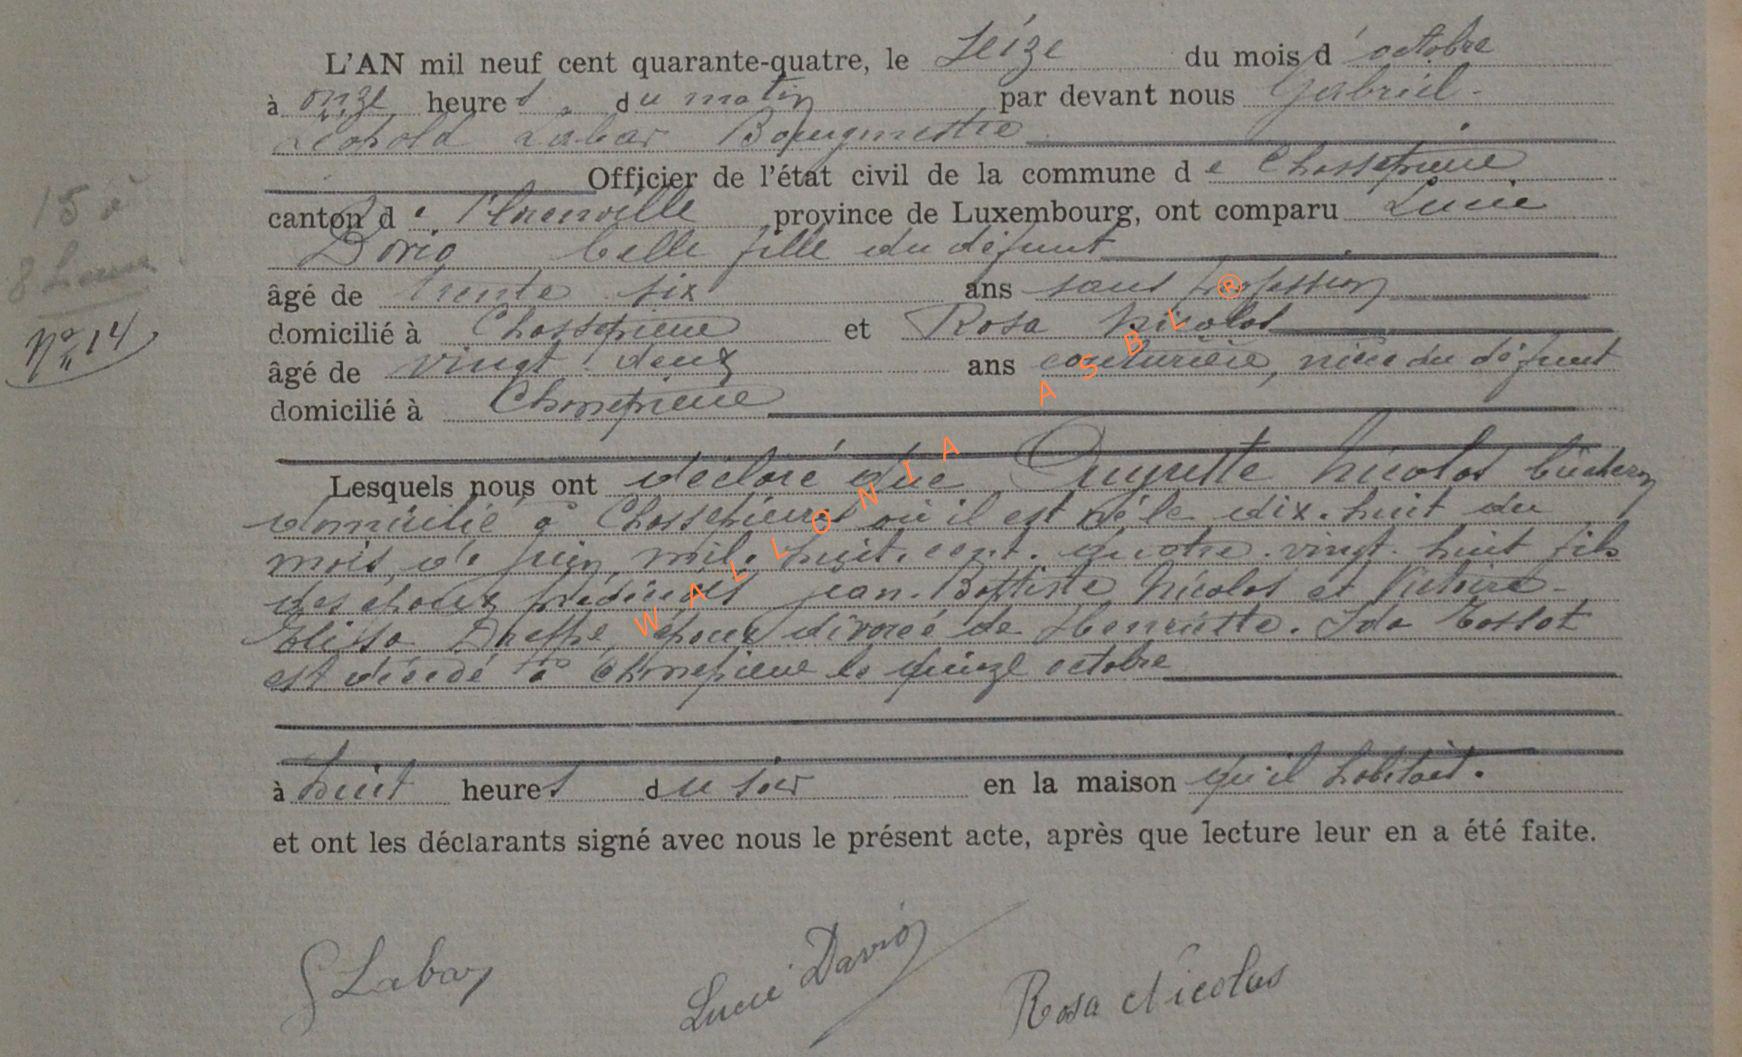 L'AN mil neuf cent quarante-quatre, le seize du mois d'octobre
à onze heures du matin par devant nous Gabriel-
Léopold Labar Bourgmestre
Officier de l'état civil de la commune de Chassepierre
canton de Florenville province de Luxembourg, ont comparu Lucie
15 à
Davio belle fille du défunt
8 heure
âgé de trente six ans sans profession
domicilié à Chassepierre et Rosa Nicolas
No 14
âgé de vingt deux ans couturière, nièce du défunt
domicilié à Chassepierre
Lesquels nous ont déclaré que Auguste Nicolas bûcheron
domicilié à Chassepierre où il est né le dix-huit du
mois de juin mil huit cent quatre-vingt-huit fils
des époux prédécédés Jean-Baptiste Nicolas et Victoire-
Elisa époux divorcé de Henriette-Ida
est décédé à Chassepierre le quinze octobre
à huit heures du soir en la maison qu'il habitait.
et ont les déclarants signé avec nous le présent acte, après que lecture leur en a été faite.
G Labar Lucie Davio Rosa Nicolas
WALLONIA ASBL ®